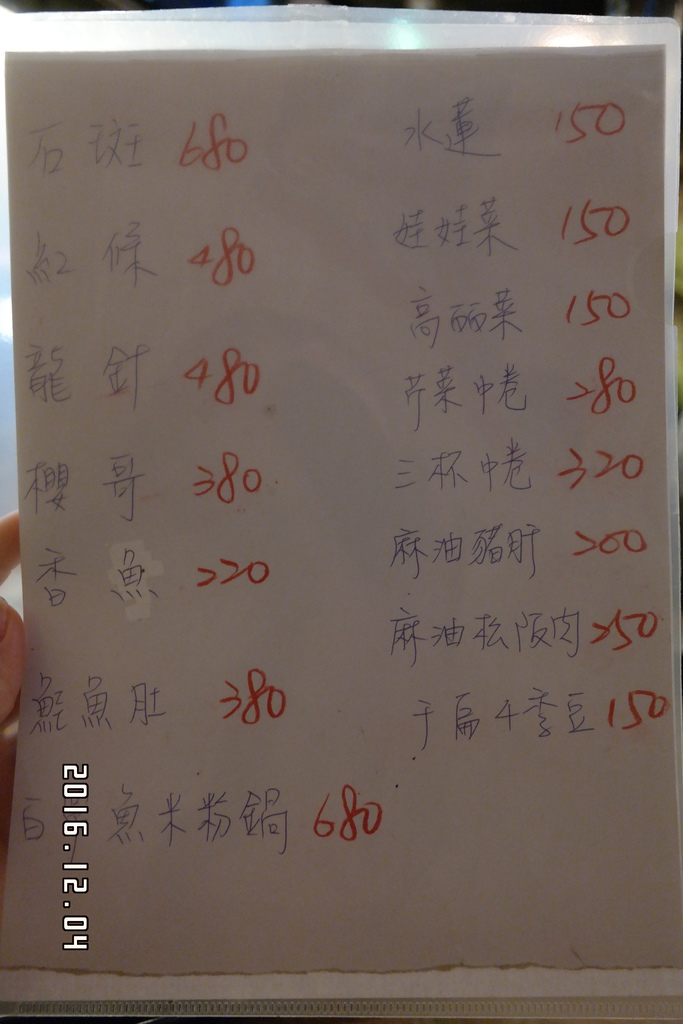 石斑 680
紅條 480
龍針 480
櫻哥 380
香魚 220
魚肚 380
白 魚米粉鍋 680
水蓮 150
娃娃菜 150
高丽菜 150
芹菜中卷 280
三杯中卷 320
麻油豬肝 200
麻油松阪肉 250
干扁4季豆 150
2016.12.04